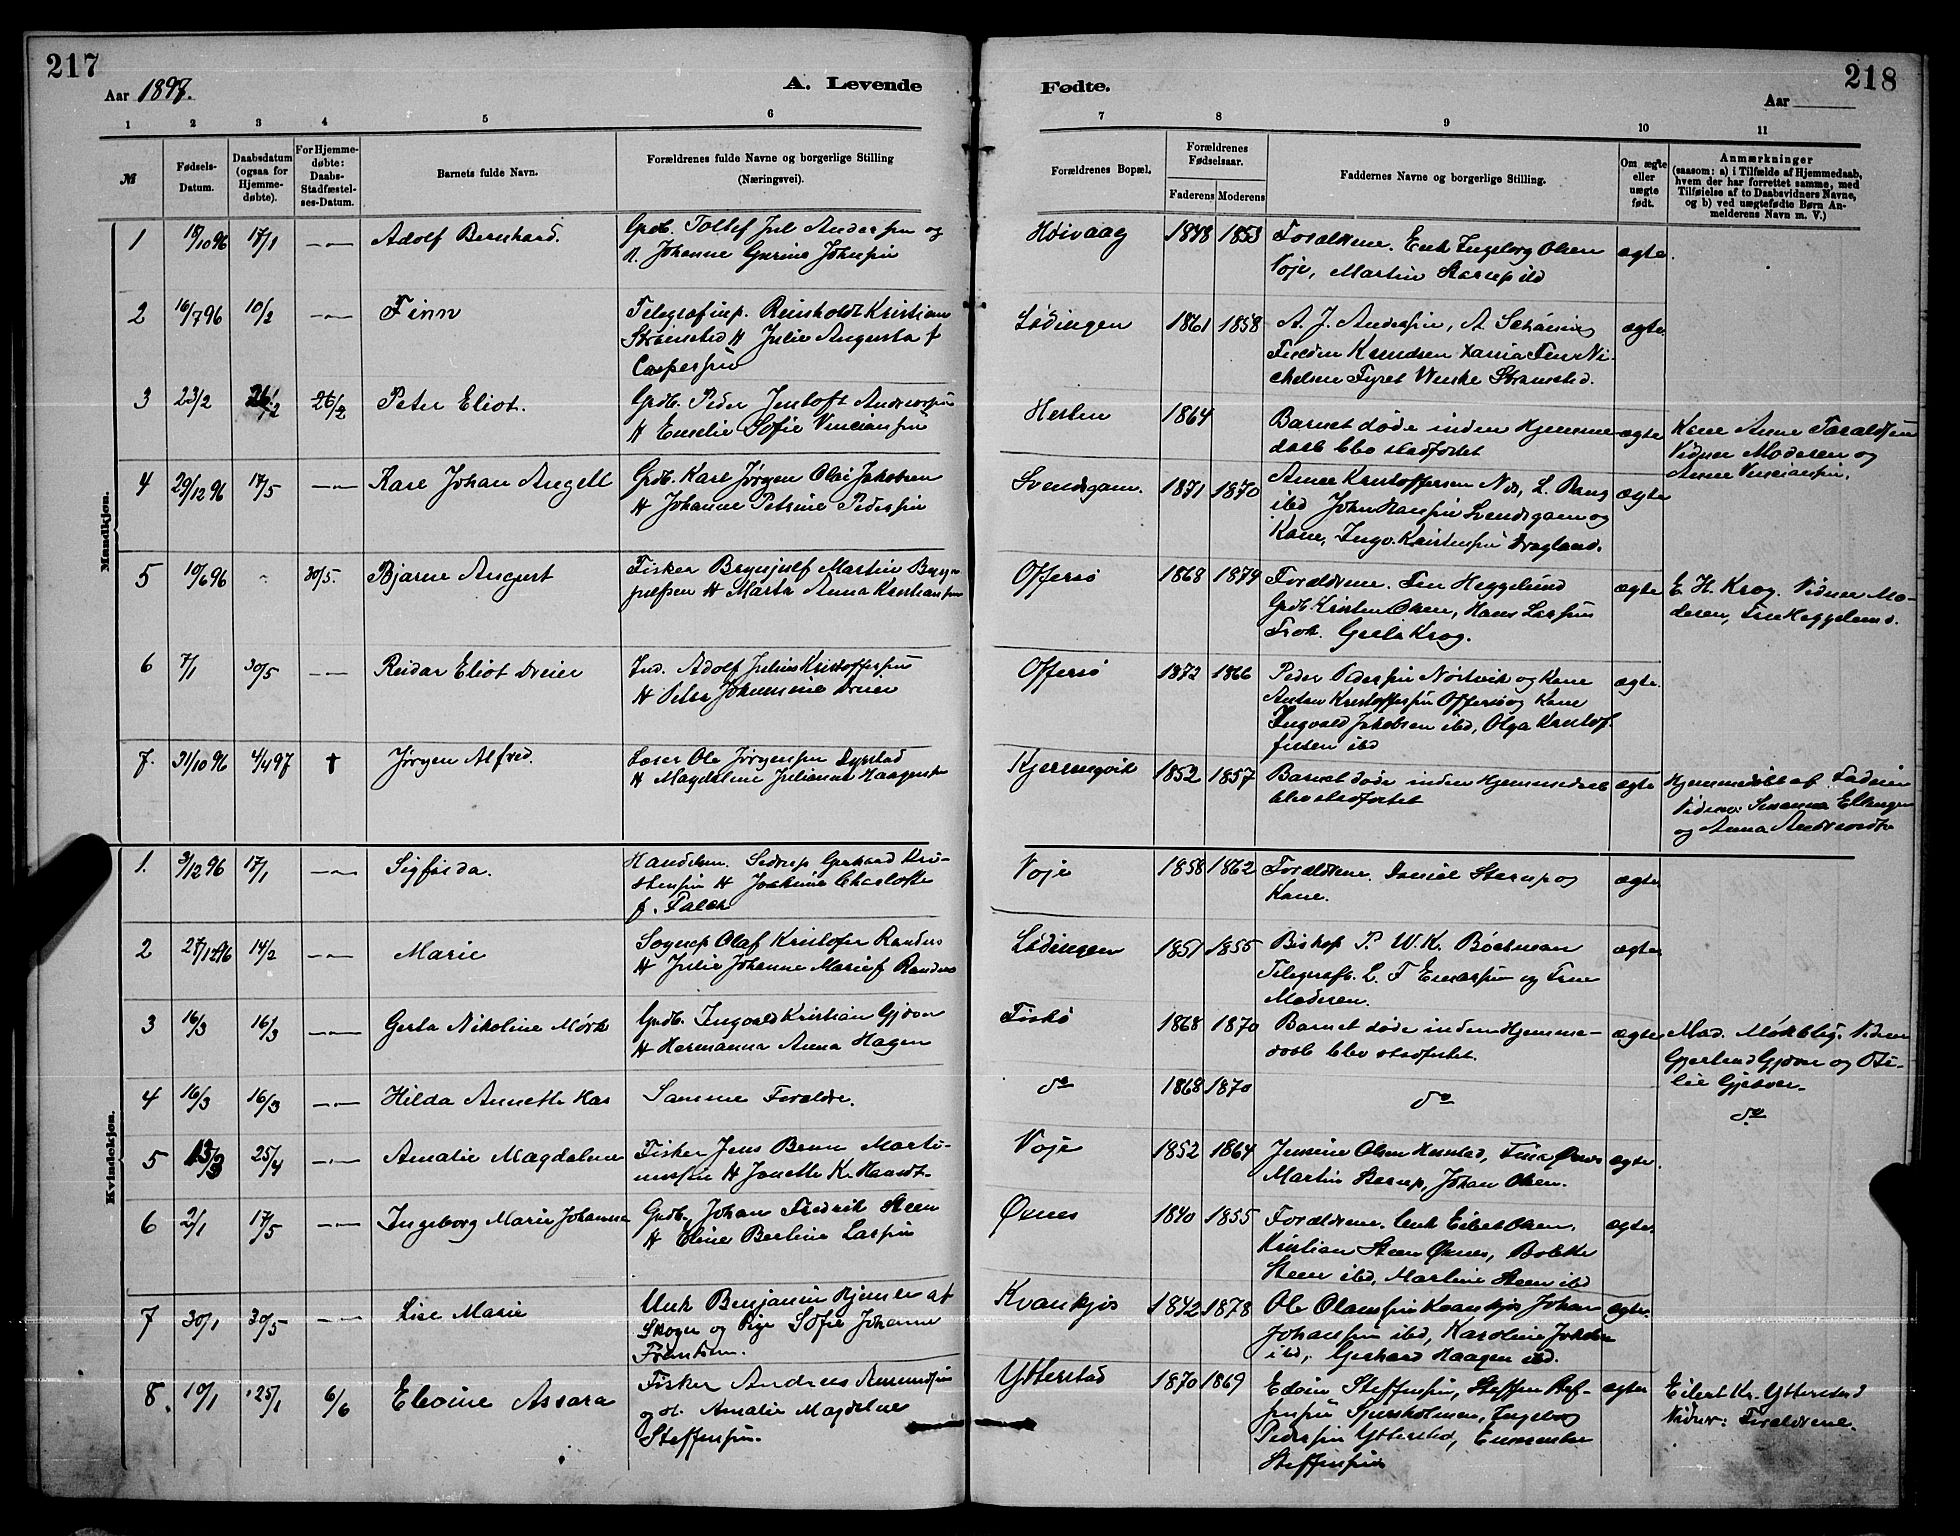 217
Aar 1897.
A. Levende
Fødte.
218
Aar
1 2 3 4 5 6 7 8 9 10 11
№
Fødsels-Datum.
Daabsdatum (ogsaa for Hjemme-døbte).
For Hjemme-døbte: Daabs-Stadfæstel-ses-Datum.
Barnets fulde Navn.
Forældrenes fulde Navne og borgerlige Stilling (Næringsvei).
Forældrenes Bopæl.
Forældrenes Fødselsaar.
Faderens Moderens
Faddernes Navne og borgerlige Stilling.
Om ægte eller uægte født.
Anmærkninger
(saasom: a) i Tilfælde af Hjemmedaab,
hvem der har forrettet samme, med
Tilføielse af to Daabsvidners Navne,
og b) ved uægtefødte Børn An-
melderens Navn m. V.)
Mandkjøn.
1 18/10 96 17/1 —„— Adolf Bernhard. Grdb. Tollef Jul Andersen og
H. Johanne Gurine Johnsen
Høivaag 1848 1853 Forældrene. Enk Ingeborg Olsen
Voje, Martin Sterup ibd
ægte.
2 16/7 96 10/2 —„— Finn Telegrafinsp. Reinholdt Kristian
Strømsted H Julie Augusta f
Caspersen
Lødingen 1861 1858 A. J. Andersen, A Schøning
Knudsen
Wenke Strømsted.
ægte.
3 23/2 26/2 26/2 Peter Eliot. Grdb. Peder Jentoft Andersen
H Emelie Sofie Vinciansen
Heslen 1864 Barnet døde inden Hjemme-
daab blev stadfæstet
ægte Kone Anne Taraldsen
Vidner Moderen og
Anne Vinciansen.
4 29/12 96 17/5 —„— Karl Johan Angell Grdb. Karl Jørgen Olai Jakobsen
H Johanne Petrine Pedersen
Svendsgam. 1871 1870 Anne Kristoffersen Næs, L. Rang
ibd John Hansen Svendsgam og
Kone, Ingv. Kristensen Dragland.
ægte
5 10/6 96 30/5. Bjarne August Fisker Brynjulf Martin Bryn
julfsen H Marta Anna Kristiansen
Offersø 1868 1874 Forældrene. Fru Heggelund
Grdb Kristen Olsen, Hans Larsen
Frøk. Gerla Krog.
ægte E. H. Krog. Vidner Mo-
deren, Fru Heggelund.
6 7/1 30/5 —„— Reidar Eliot Dreier Ind. Adolf Julius Kristoffersen
H Petra Johannsine Dreier
Offersø 1872 1866 Peder Pedersen Nørtvik og Kone
Anton Kristoffersen Offersø og Kone
Ingvald Jakobsen ibd, Olga Kristof
fersen ibd
ægte.
7. 31/10 96 4/4 97 † Jørgen Alfred. Loser Ole Jørgensen Dyrstad
H Magdalene Julianna Haagensen
Kjeringvik 1852 1857 Barnet døde inden Hjemmedaab
blev stadfæstet
ægte Hjemmedøbt af Faderen
Vidner: Susanna Ellingsen
og Anna
Kvindekjøn.
1. 3/12 96 17/1 —„— Sigfrida. Handelsm. Sedrup Gerhard Kri-
stensen H Joakime Charlotte
f. Falch
Voje 1858 1862 Forældrene. Daniel Sterup og
Kone.
ægte
2 27/12 96 14/2 —„— Marie Sognep Olaf Kristofer Randers
H Julie Johanne Marie f Randers
Lødingen 1851 1855 Biskop P. W. K. Bøckman
Telegrafb. L. T. Enarsen og Frue
Moderen.
ægte
3 16/3 16/3 —„— Gerta Nikoline Mørk Grdb. Ingvald Kristian Gjøvær
H Hermanna Anna Hagen
Fiskø 1868 1870 Barnet døde inden Hjemme-
daab blev stadfæstet.
ægte Mad. Mökblig. Vidner
Gjertrud Gjøvær og Oti-
lie Gjøvær.
4 16/3 16/3 —„— Hilda Annette Kas Samme Forældre.
do 1868 1870 do do
5 13/3 25/4 —„— Amalie Magdalene Fisker Jens Benn Marti-
nussen H Janette K. Haardt.
Voje 1852 1864 Jensine Olsen Kvistad, Fina Øxnes
Martin Sterup, Johan Olsen.
ægte.
6 2/1 17/5 —„— Ingeborg Marie Johanna Grdb. Johan Fredrik Steen
H Elene Berline Larsen
Øxnes 1840 1855 Forældrene. Enk Eibet Olsen.
Kristian Steen Øxnes, Bolette
Steen ibd, Martine Steen ibd
ægte.
7 30/1 30/5 —„— Lise Marie Unk Benjamin Hjemler af
Skogen og Pige Sofie Johanne
Frantsen.
Kvankjos 1842 1878 Ole Olamsen Kvankjos Johan
Johansen ibd, Karoline Johan
ibd, Gerhard Haagen ibd.
ægte.
8. 10/1 25/1 6/6 Elvine Assara Fisker Andreas Amundsen
og H. Amalie Magdelene
Steffensen.
Ytterstad 1870 1869 Edvin Steffensen, Steffen Stef-
fensen Sjursholmen, Ingeborg
Pedersen Ytterstad,
Steffensen
ægte Eilert Kr. Ytterstad
Vidner: Forældrene.